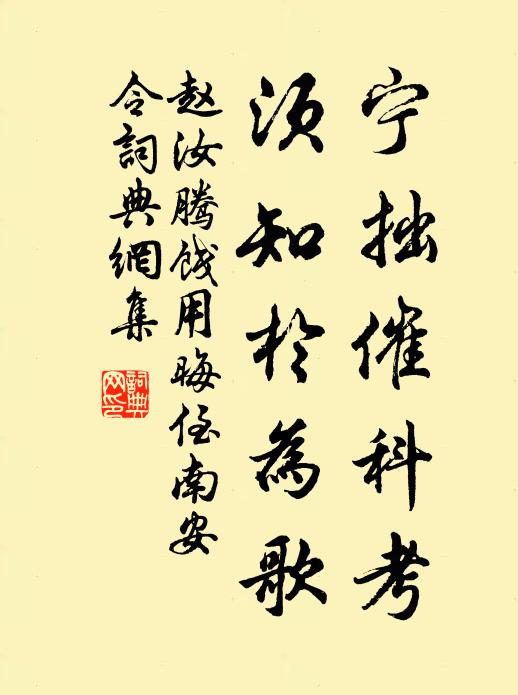 宁拙催科考
须知於为歌
赵汝腾饯用晦侄南安
令詞典網集
詞典
网印